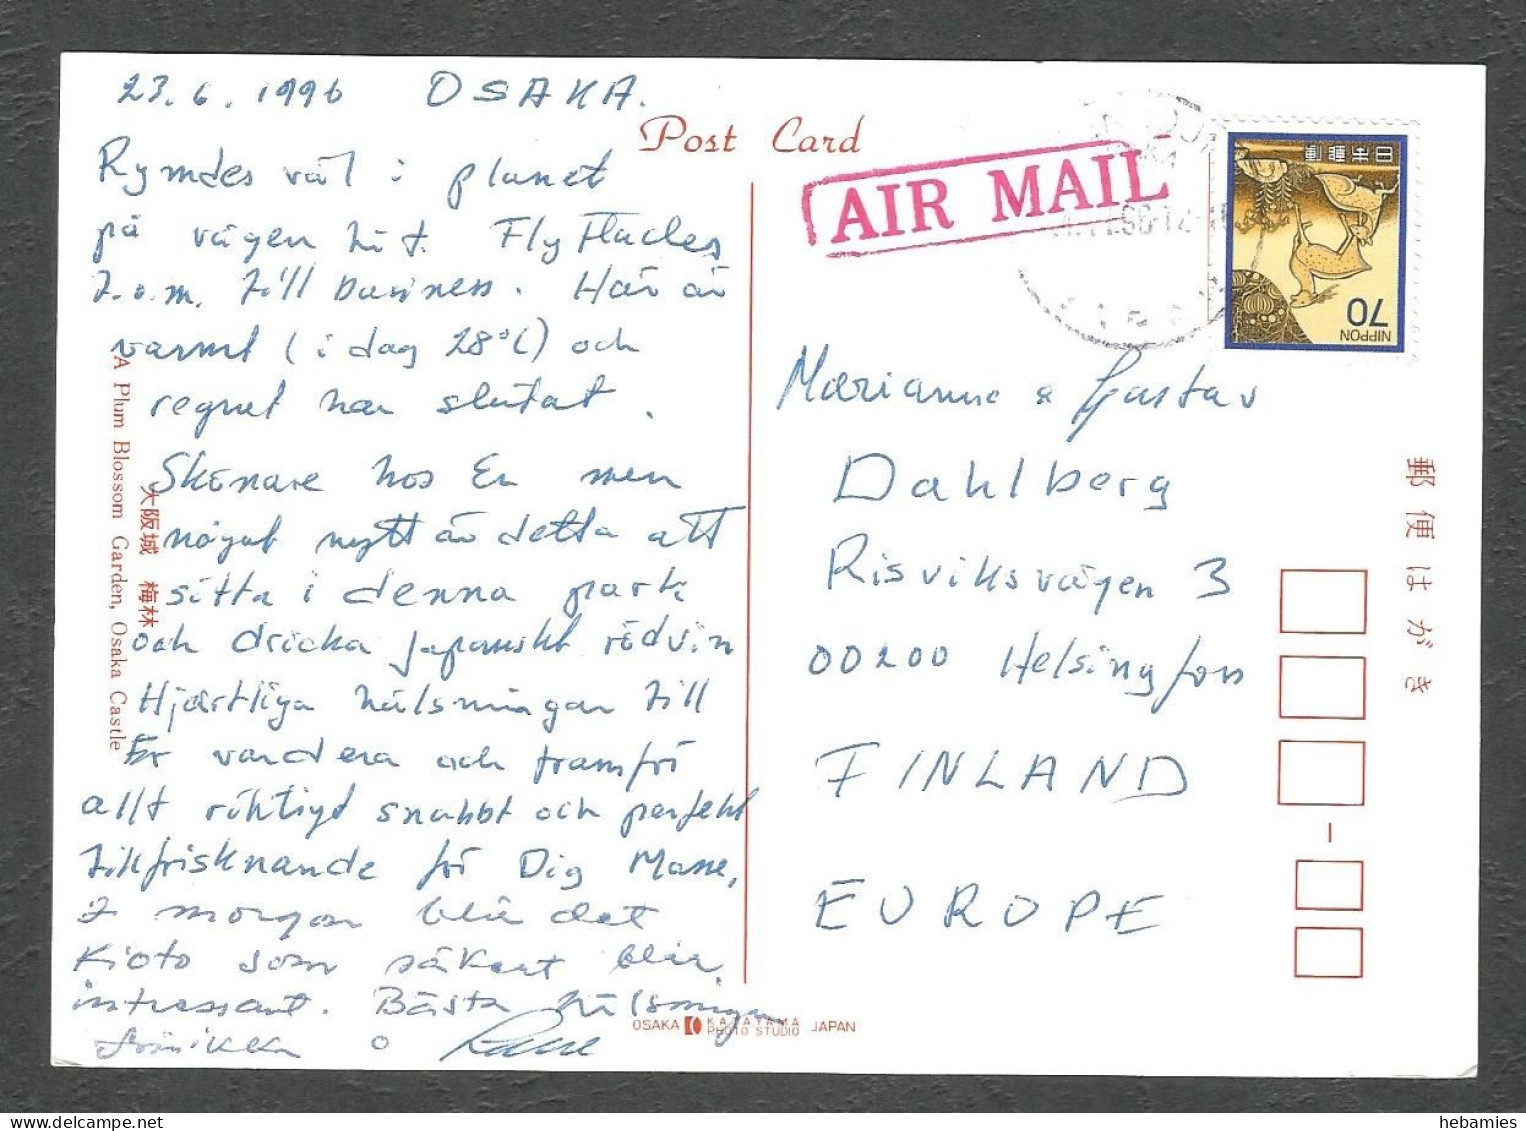 23.6.1996 OSAKA.
Rymdes väl i planet
på vägen hit. Fly
t.o.m. till business. Här är
varmt (i dag 28°C) och
regnet har slutat.
Skönare hos Er men
något nytt är detta att
sitta i denna park
och dricka japanskt rödvin
Hjärtliga hälsningar till
Er vardera och framför
allt riktigt snabbt och perfekt
tillfrisknande för Dig Masse,
I morgon blir det
Kioto som säkert blir
intressant. Bästa hälsningar
o
Post Card
AIR MAIL
日本郵便
70
NIPPON
Marianne & Gustav
Dahlberg
Risviksvägen 3
00200 Helsingfors
FINLAND
EUROPE
郵便はがき
A Plum Blossom Garden, Osaka Castle
大阪城 梅林
OSAKA KATAYAMA PHOTO STUDIO JAPAN
hebamies